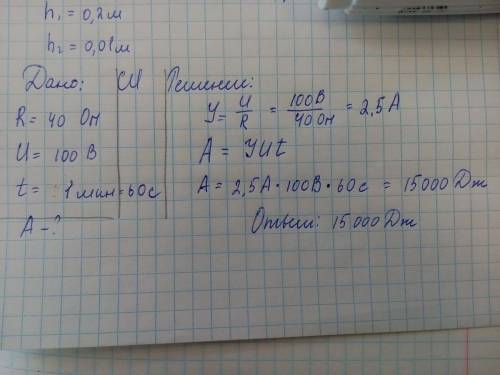 h₁ = 0,2 м
h₂ = 0,01 м
Дано: СИ Решение:
R = 40 Ом
U = 100 В
t = 1 мин = 60 с
A - ?
У = U/R = 100В/40 Ом = 2,5 А
A = УUt
A = 2,5А · 100В · 60с = 15000 Дж
Ответ: 15 000 Дж